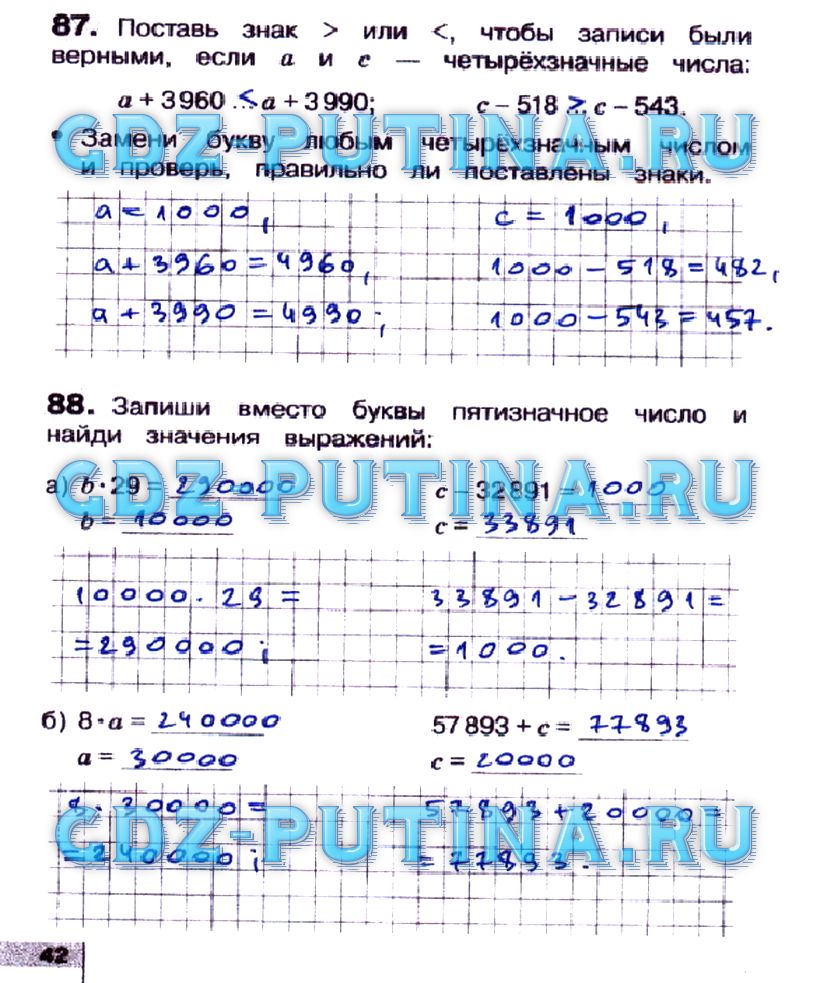 87. Поставь знак > или <, чтобы записи были
верными, если a и c — четырёхзначные числа:
a + 3960 ..<. a + 3990; c – 518 ..>. c – 543.
• Замени букву любым четырёхзначным числом
GDZ-PUTINA.RU
и проверь, правильно ли поставлены знаки.
a = 1000, c = 1000,
a + 3960 = 4960, 1000 – 518 = 482,
a + 3990 = 4990; 1000 – 543 = 457.
88. Запиши вместо буквы пятизначное число и
найди значения выражений:
а) b · 29 = 290000 c – 32891 = 1000
GDZ-PUTINA.RU
b = 10000 c = 33891
10000 · 29 = 33891 – 32891 =
= 290000; = 1000.
б) 8 · a = 240000 57893 + c = 77893
a = 30000 c = 20000
8 · 30000 = 57893 + 20000 =
GDZ-PUTINA.RU
= 240000; = 77893.
42